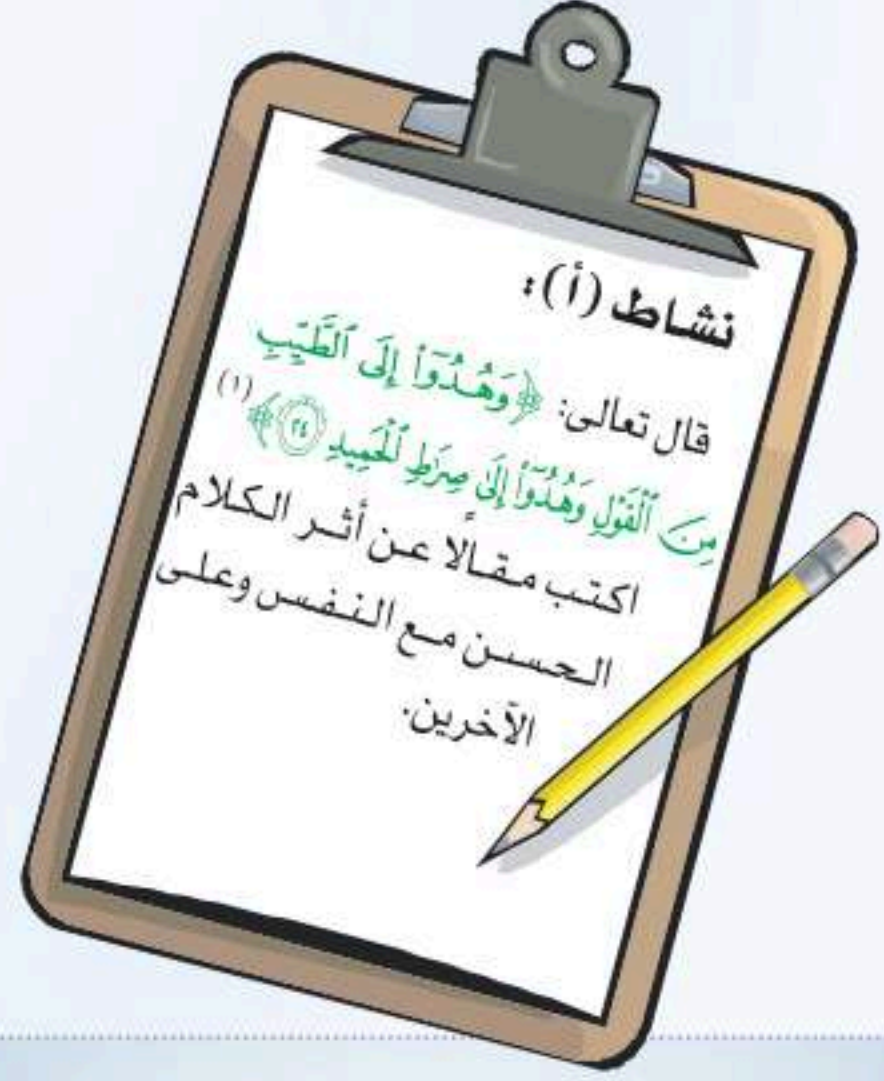 نشاط (أ):
قال تعالى: ﴿وَهُدُوٓاْ إِلَى ٱلطَّيِّبِ
مِنَ ٱلۡقَوۡلِ وَهُدُوٓاْ إِلَىٰ صِرَٰطِ ٱلۡحَمِيدِ ٢٤﴾(١)
اكتب مقالًا عن أثر الكلام
الحسن مع النفس وعلى
الآخرين.